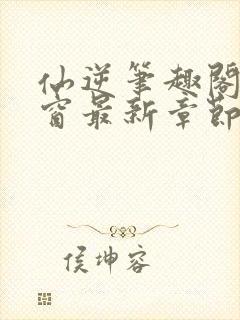 仙逆笔趣阁
窗最新章节
侯坤容